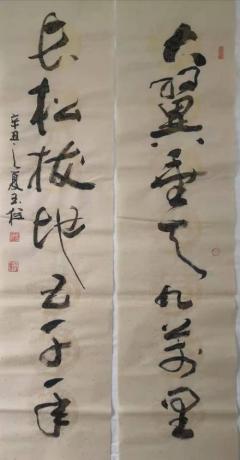 大翼垂天九萬里
長松拔地五千年
辛丑之夏玉俊